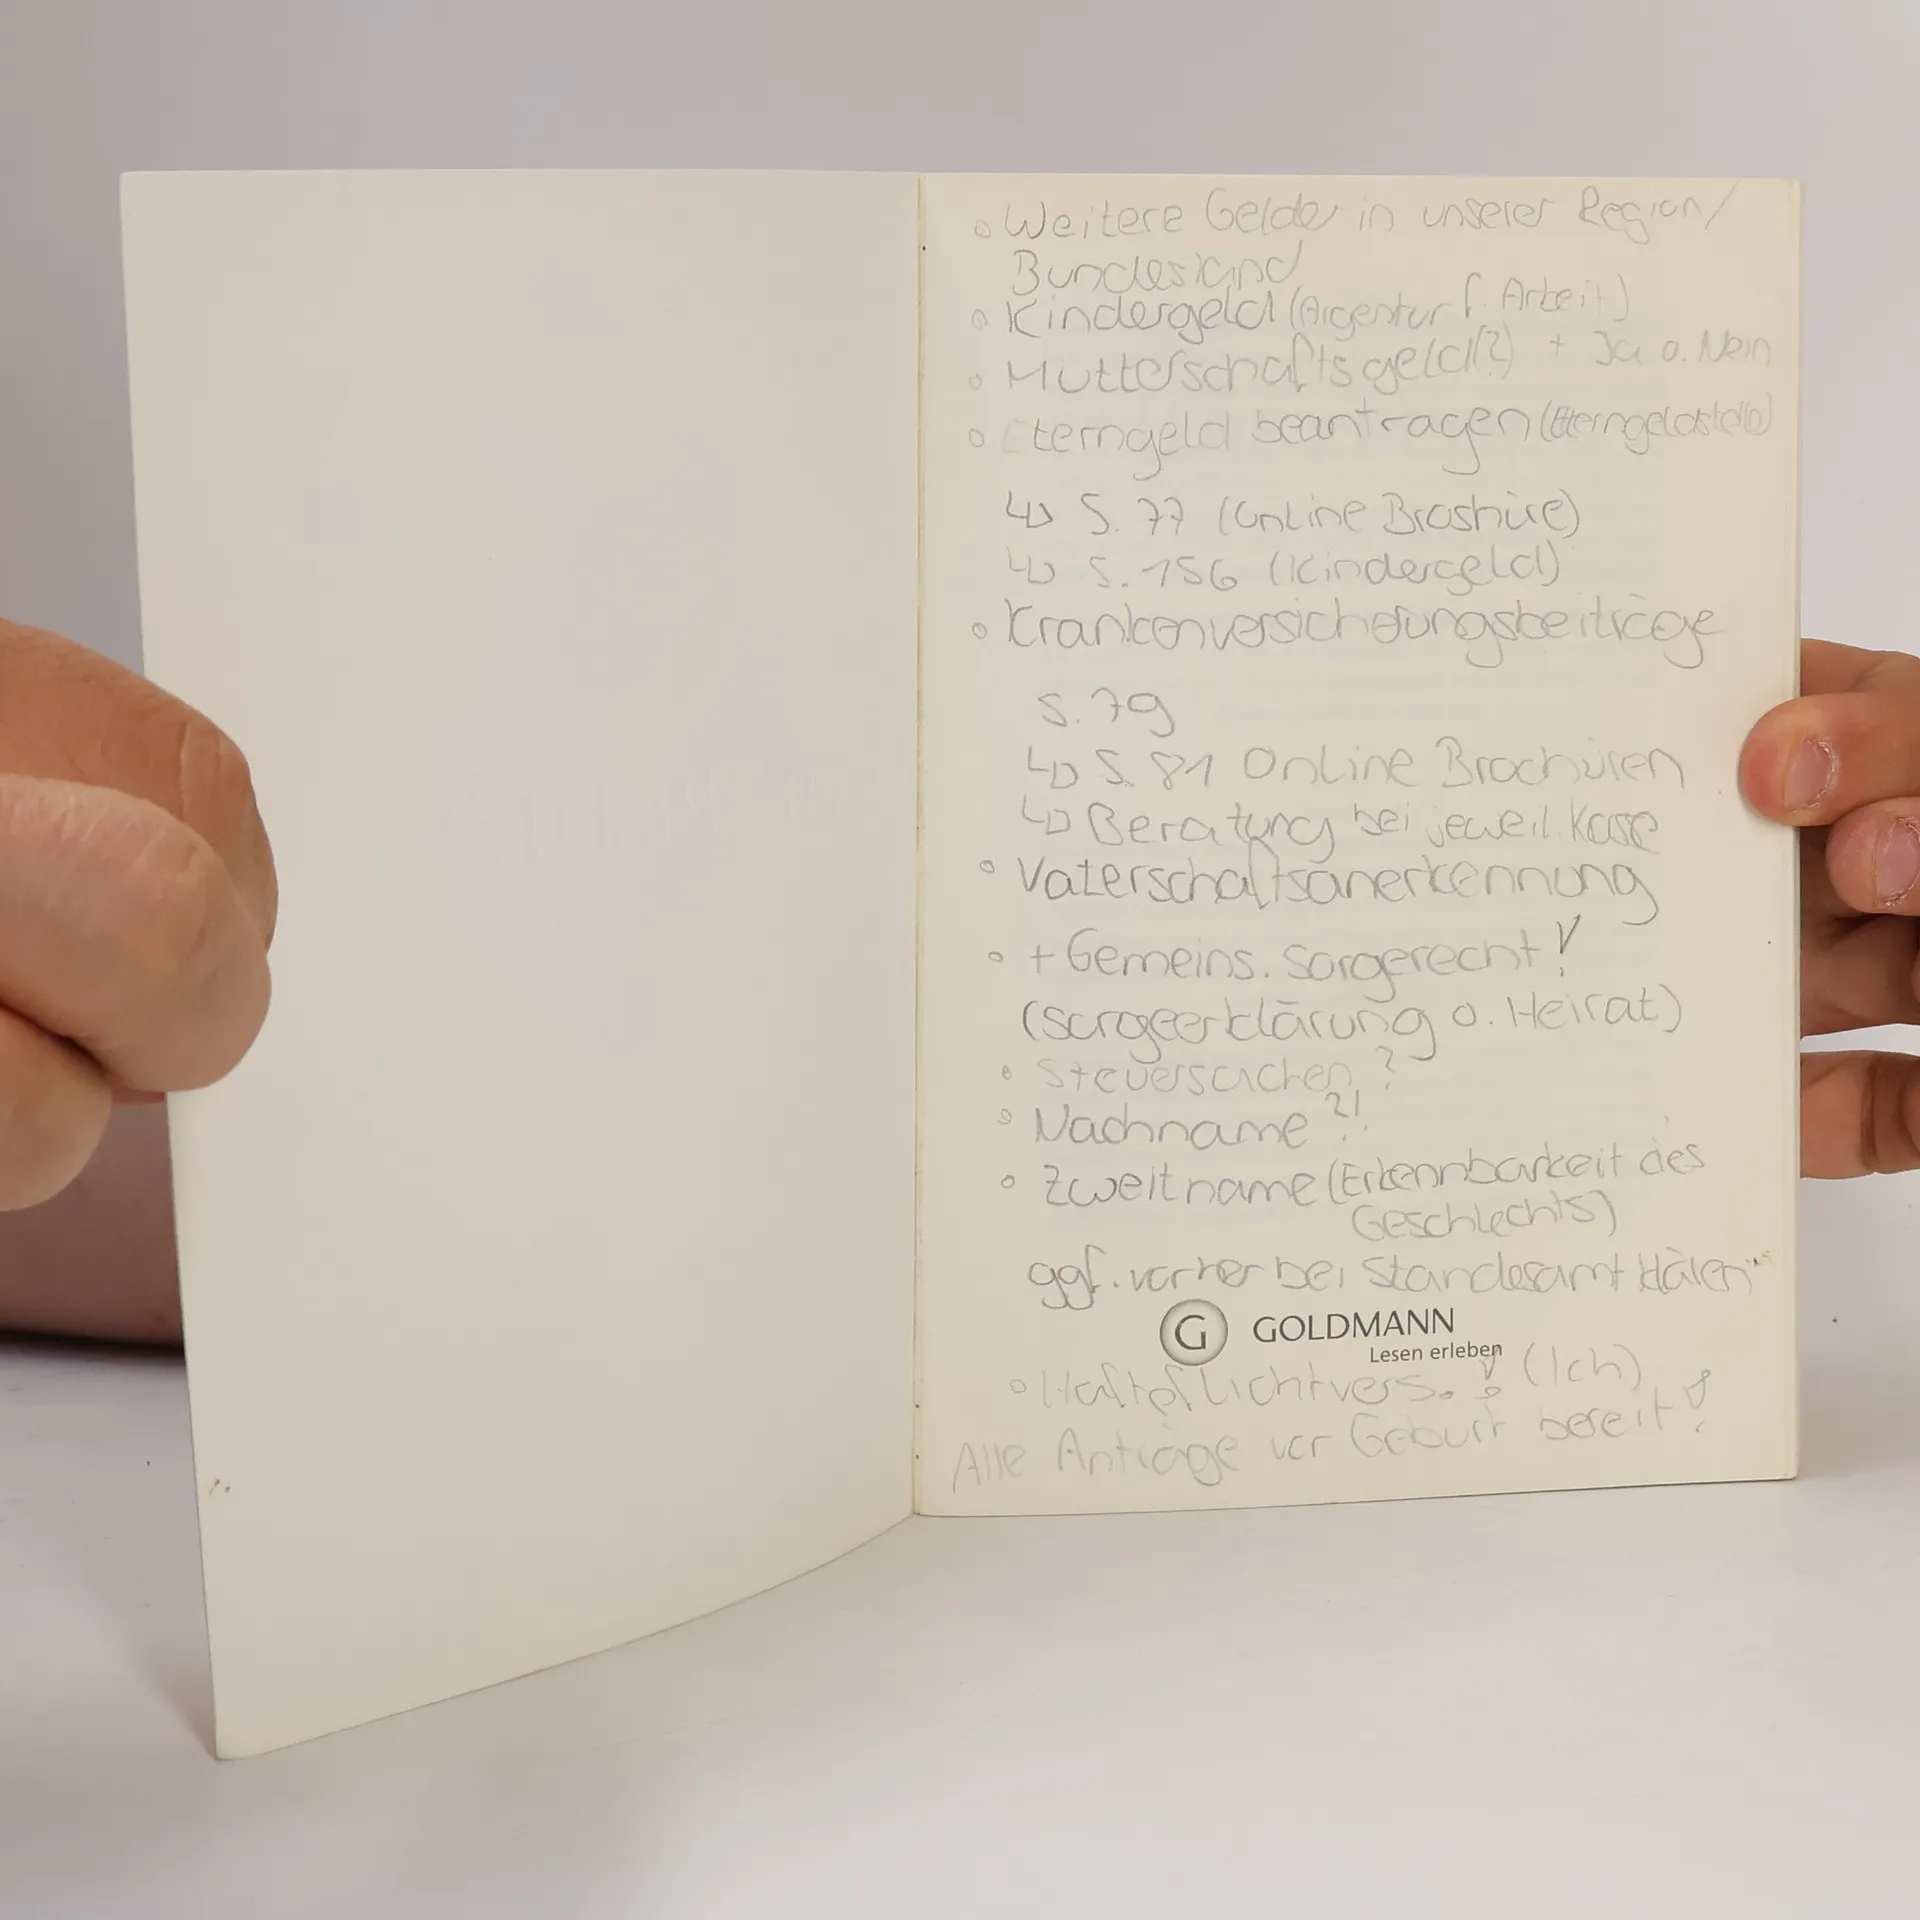 ◦ Weitere Gelder in unserer Region/
Bundesland
◦ Kindergeld (Argentur f. Arbeit)
◦ Mutterschaftsgeld(?) + Ja o. Nein
◦ Elterngeld beantragen (Elterngeldstelle)
↳ S. 77 (Online Broshüre)
↳ S. 156 (Kindergeld)
◦ Krankenversicherungsbeiträge
S. 79
↳ S. 81 Online Brochüren
↳ Beratung bei jeweil. Kasse
◦ Vaterschaftsanerkennung
◦ + Gemeins. Sorgerecht!
(Sorgeerklärung o. Heirat)
◦ Steuersachen?
◦ Nachname?!
◦ Zweitname (Erkennbarkeit des
Geschlechts)
ggf. vorher bei Standesamt klären
G GOLDMANN
Lesen erleben
◦ Haftpflichtvers.! (Ich)
Alle Anträge vor Geburt bereit!